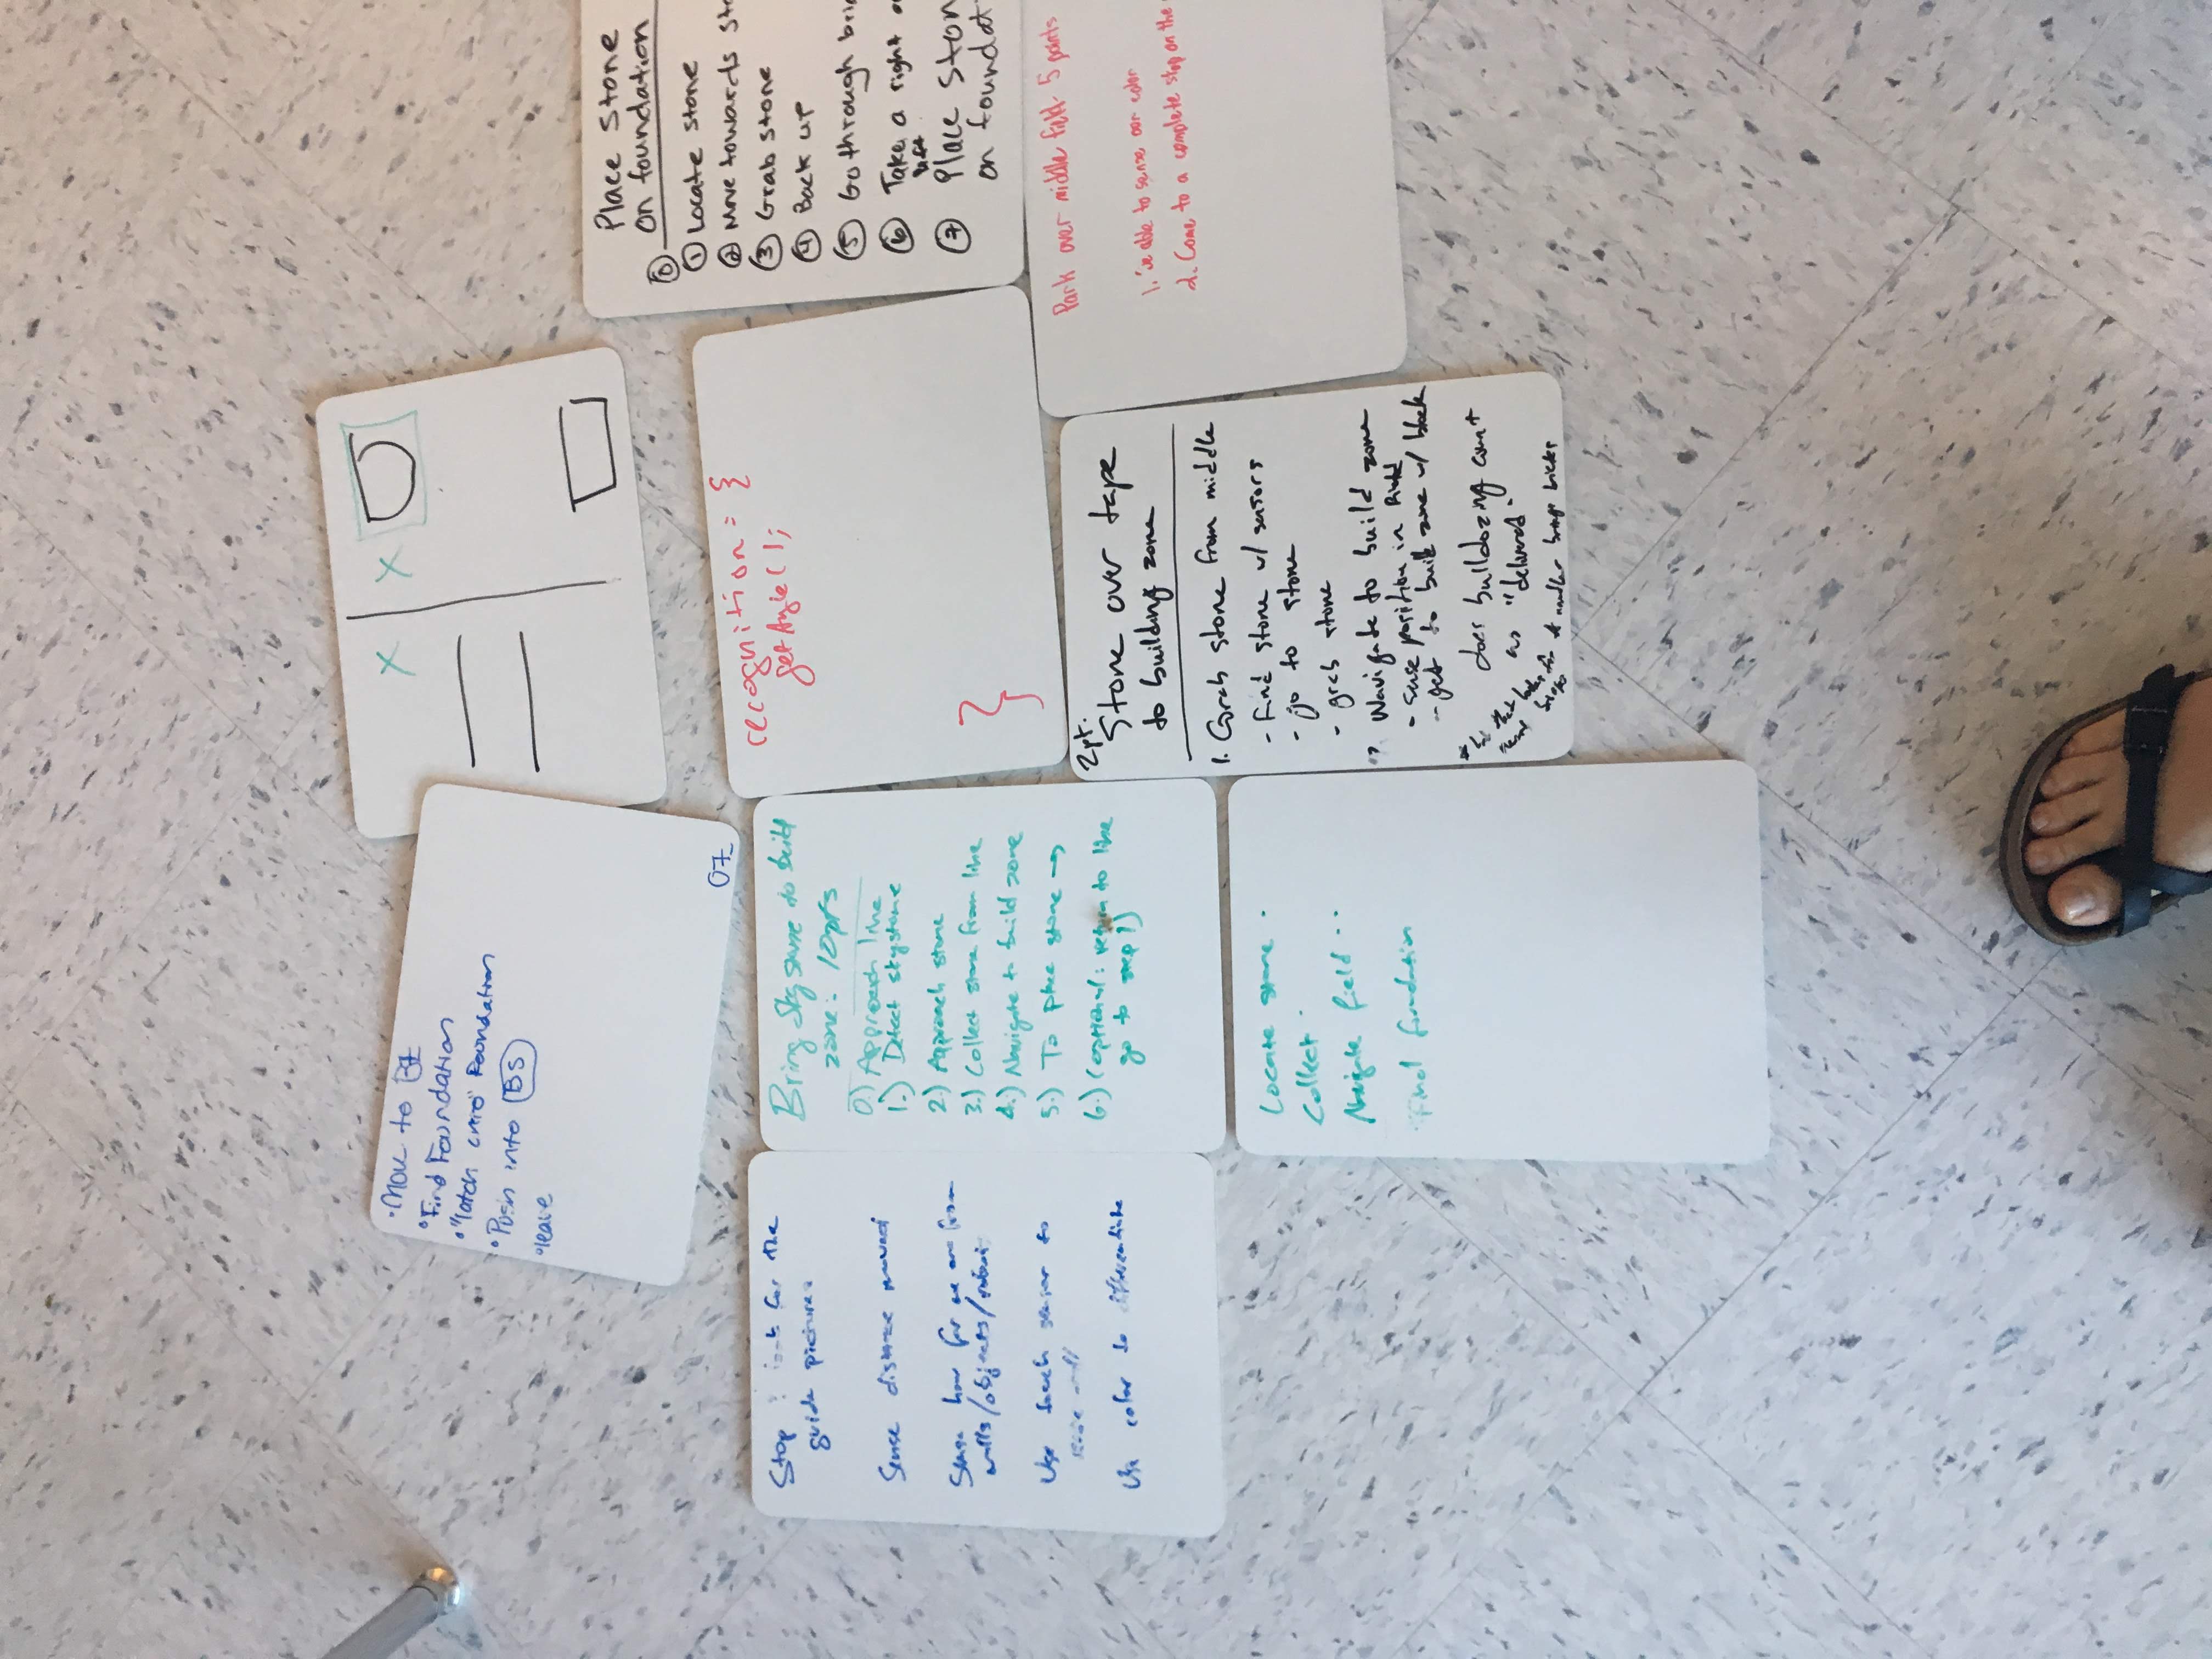 •Move to BZ
•Find Foundation
•"latch onto" Foundation
•Push into BS
•leave
07
X X
Place Stone
on foundation
0
1 Locate stone
2 Move towards
3 Grab stone
4 Back up
5 Go through
6 Take a right
left
7 Place
on
recognition = {
}
Stop : look for the
guide pictures
Sense distance moved
Sense how far we are from
walls/objects/robot
Use touch sensor to
Use color to differentiate
Bring Skystone to build
zone: 10pts
0.) Approach line
1.) Detect skystone
2.) Approach stone
3.) Collect stone from line
4.) Navigate to build zone
5.) To place stone →
6.) (optional: return to line
go to step 1)
2pt.
Stone over tape
to building zone
1. Grab stone from middle
- Find stone w/ sensors
- go to stone
- grab stone
Navigate to build zone
- sense position in field
- get to build zone w/ block
does bulldozing count
as "delivered"
brings bricks
Park over middle field- 5 points
1. able to sense our color
2. Come to a complete stop on the
Locate stone .
Collect .
Navigate field ..
Find foundation